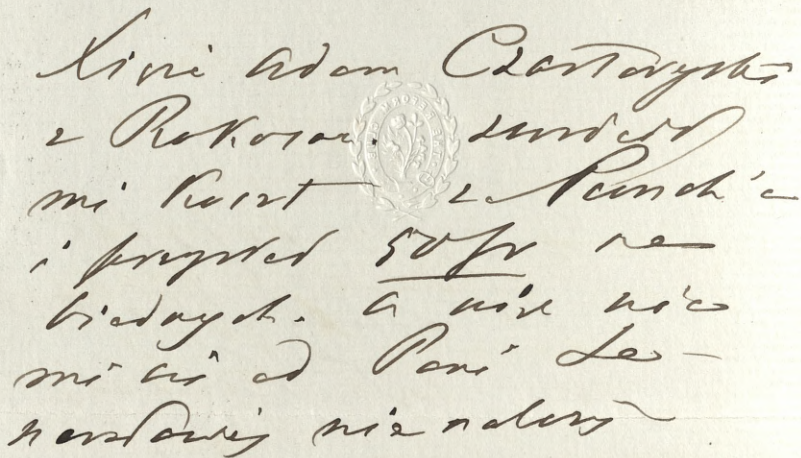 Xiąże Adam Czartoryski
z Rokosow. zwrócił
mi koszt z Punch'a
i przysłał 50 fr na
biednych. a więc nic
mi się od Pani Le-
nartowiczowej nie należy